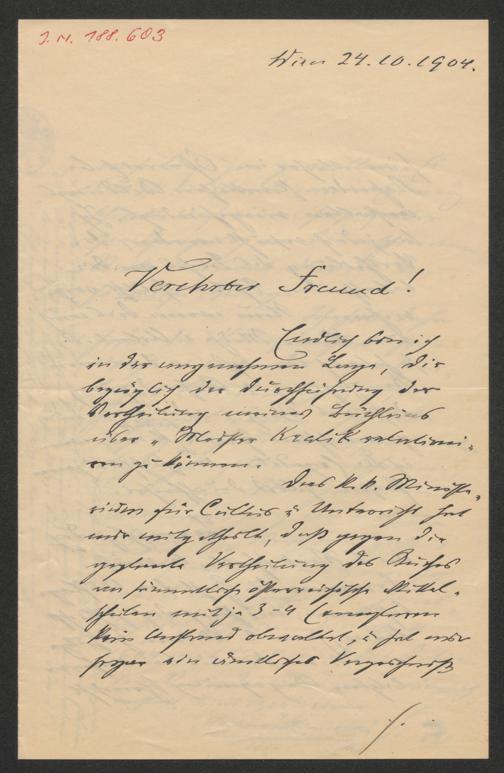 J.N. 188.603
Wien 24.10.1904.
Verehrter Freund!
Endlich bin ich
in der angenehmen Lage, Dir
bezüglich der Durchführung der
Vertheilung meines Büchleins
über „Meister Kralik
zu können.
Das k.k. Ministe„
rium für Cultus u Unterricht hat
mir mitgetheilt, daß gegen die
geplante Vertheilung des Buches
an sämmtliche österreichische Mittel„
schulen mit je 3-4 Exemplaren
kein Anstand obwaltet, u hat mir
sogar ein amtliches